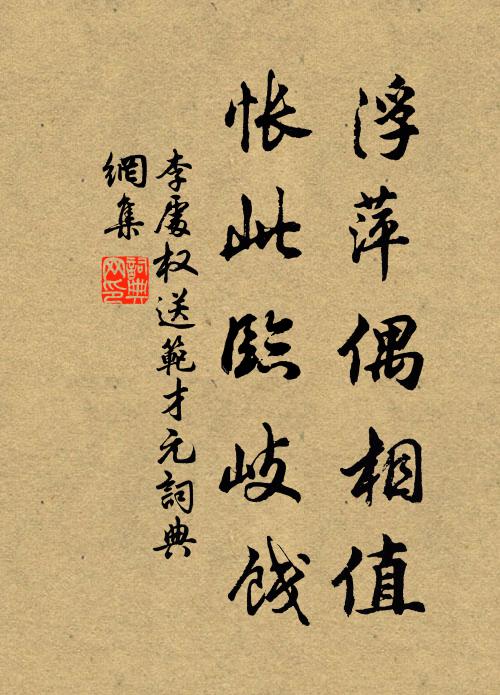 浮萍偶相值
悵此臨岐餞
李處权送範才元詞典
網集
詞典網印